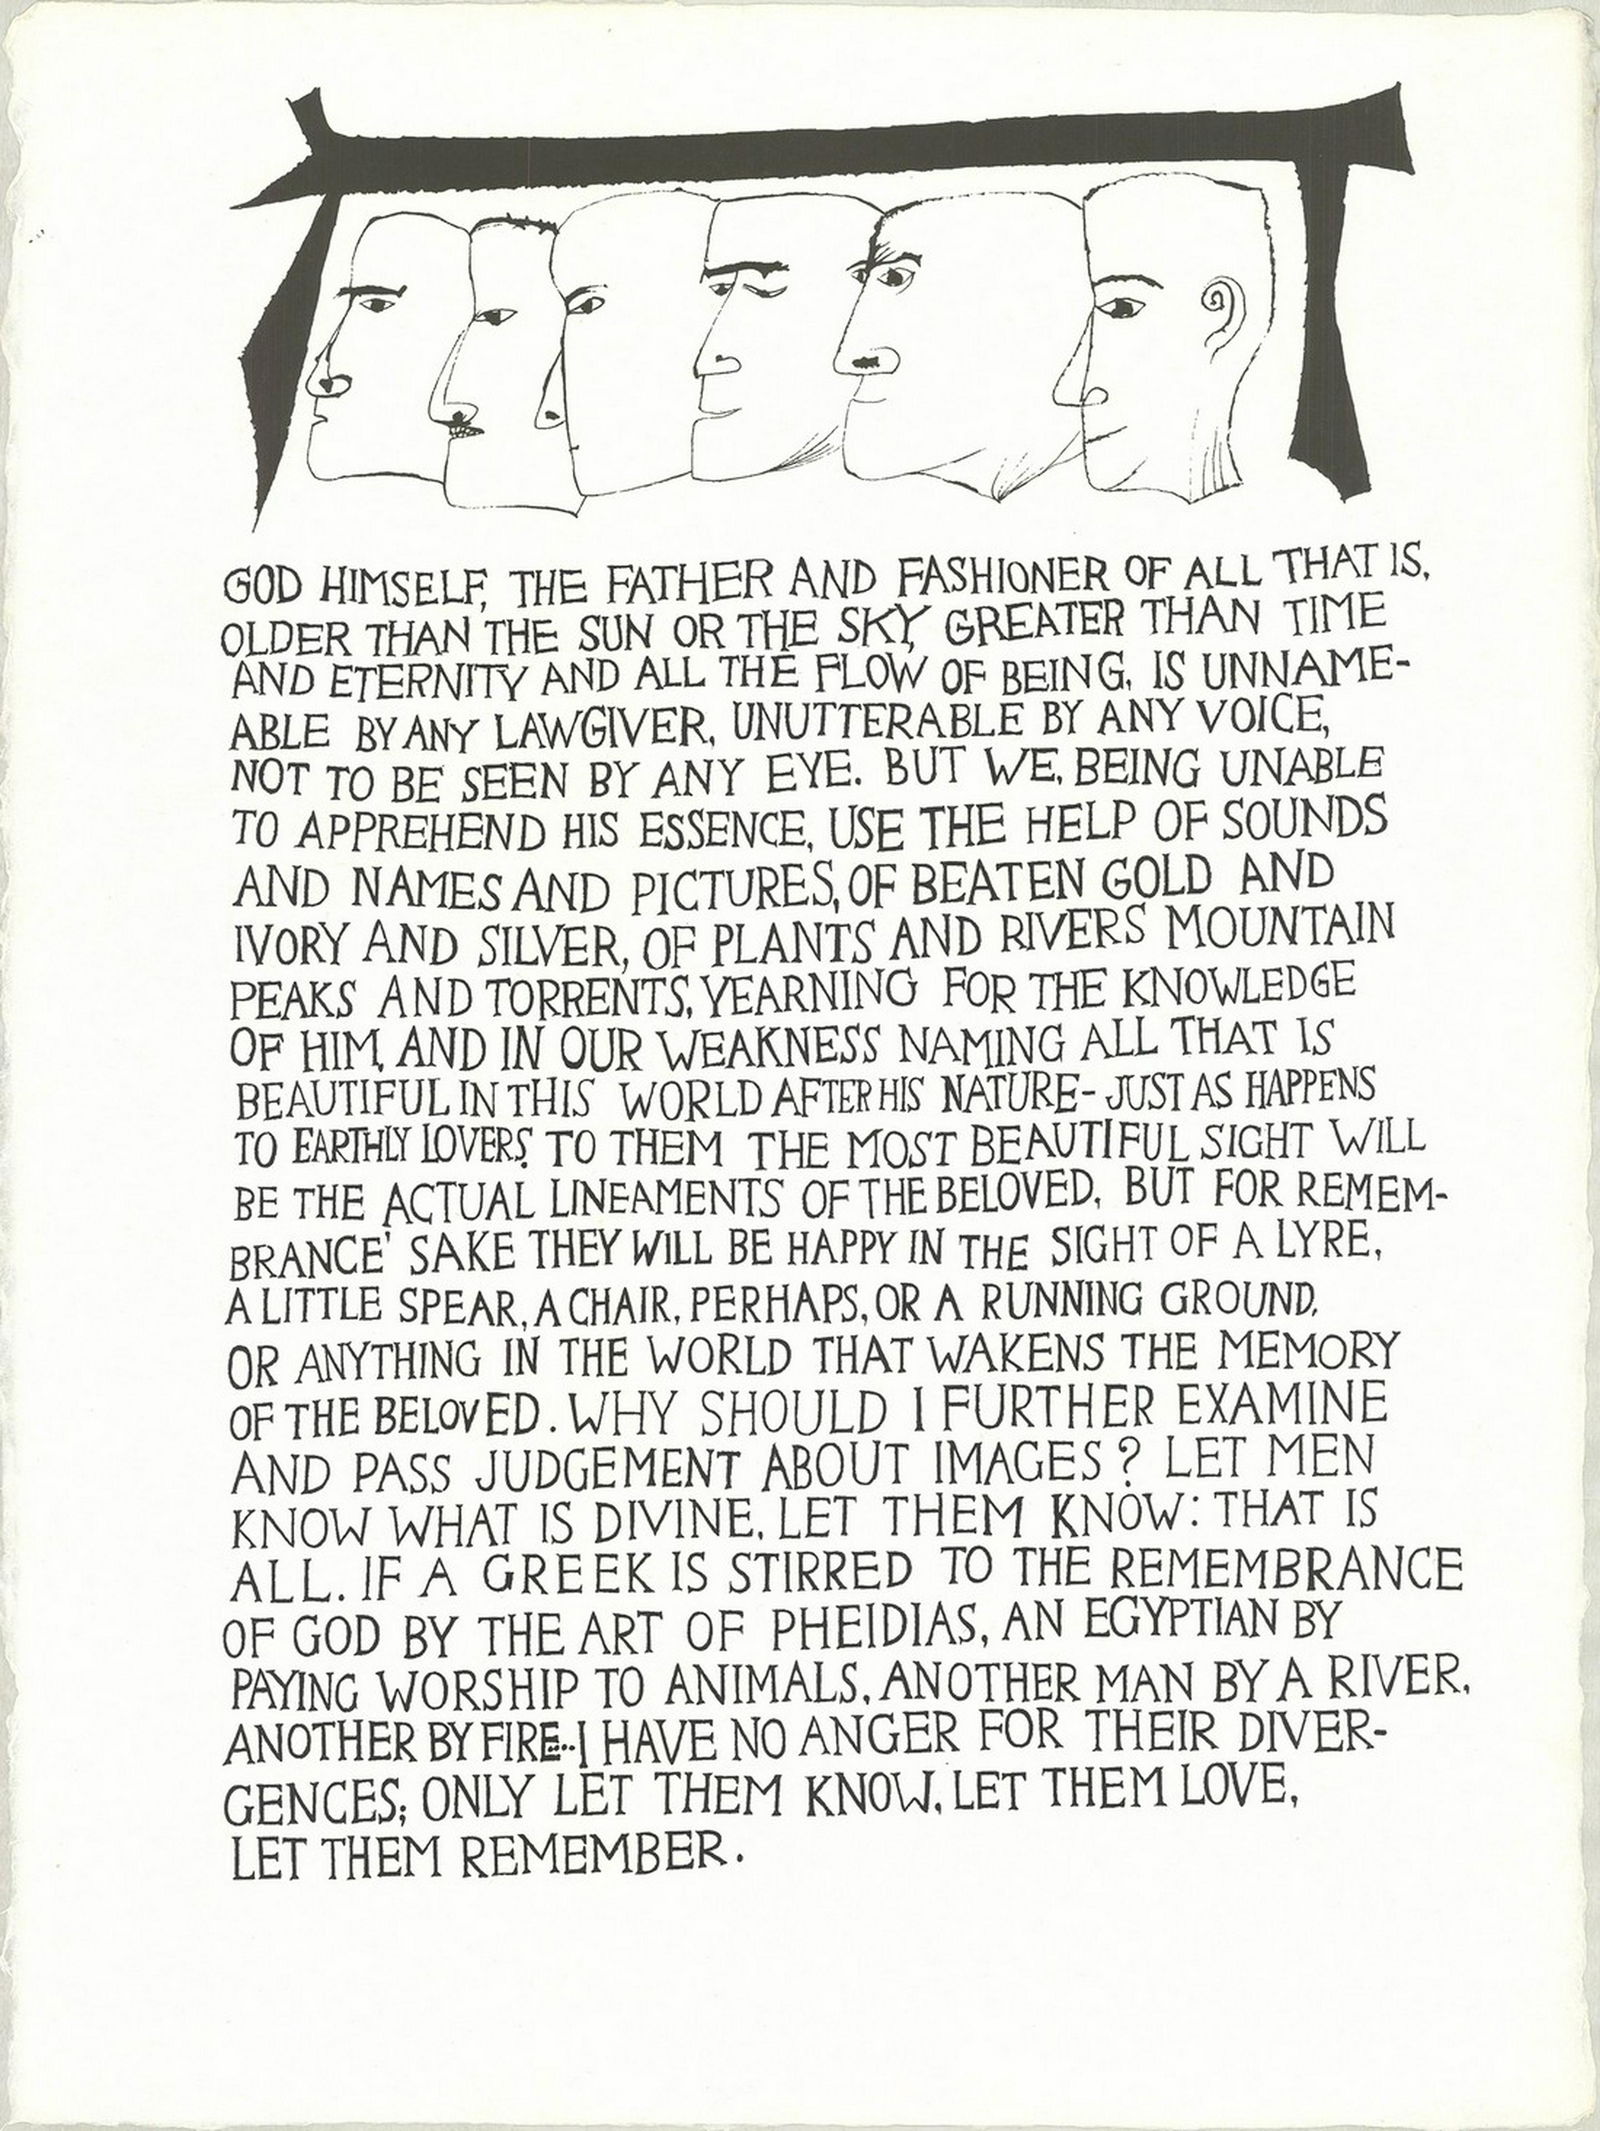 GOD HIMSELF, THE FATHER AND FASHIONER OF ALL THAT IS,
OLDER THAN THE SUN OR THE SKY, GREATER THAN TIME
AND ETERNITY AND ALL THE FLOW OF BEING, IS UNNAME-
ABLE BY ANY LAWGIVER, UNUTTERABLE BY ANY VOICE,
NOT TO BE SEEN BY ANY EYE. BUT WE, BEING UNABLE
TO APPREHEND HIS ESSENCE, USE THE HELP OF SOUNDS
AND NAMES AND PICTURES, OF BEATEN GOLD AND
IVORY AND SILVER, OF PLANTS AND RIVERS MOUNTAIN
PEAKS AND TORRENTS, YEARNING FOR THE KNOWLEDGE
OF HIM, AND IN OUR WEAKNESS NAMING ALL THAT IS
BEAUTIFUL IN THIS WORLD AFTER HIS NATURE- JUST AS HAPPENS
TO EARTHLY LOVERS. TO THEM THE MOST BEAUTIFUL SIGHT WILL
BE THE ACTUAL LINEAMENTS OF THE BELOVED, BUT FOR REMEM-
BRANCE' SAKE THEY WILL BE HAPPY IN THE SIGHT OF A LYRE,
A LITTLE SPEAR, A CHAIR, PERHAPS, OR A RUNNING GROUND,
OR ANYTHING IN THE WORLD THAT WAKENS THE MEMORY
OF THE BELOVED. WHY SHOULD I FURTHER EXAMINE
AND PASS JUDGEMENT ABOUT IMAGES? LET MEN
KNOW WHAT IS DIVINE, LET THEM KNOW: THAT IS
ALL. IF A GREEK IS STIRRED TO THE REMEMBRANCE
OF GOD BY THE ART OF PHEIDIAS, AN EGYPTIAN BY
PAYING WORSHIP TO ANIMALS, ANOTHER MAN BY A RIVER,
ANOTHER BY FIRE--I HAVE NO ANGER FOR THEIR DIVER-
GENCES; ONLY LET THEM KNOW, LET THEM LOVE,
LET THEM REMEMBER.